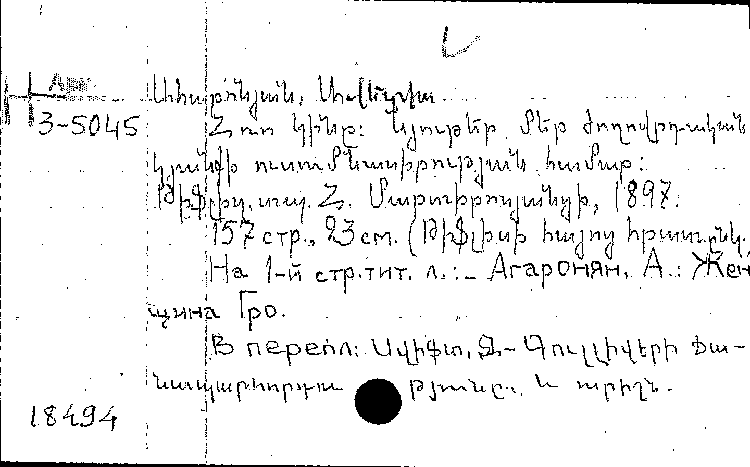 Арм.
3-5045
Ահարոնյան, Ավետիս
Հոռ կինը: Նյութեր մեր ժողովրդական
կյանքի ուսումնասիրության համար:
Թիֆլիս, տպ. Հ. Մարտիրոսյանցի, 1897.
157 стр., 23 см. (Թիֆլիսի հայոց հրատ. ընկ.
На 1-й стр. тит. л.: – Агаронян, А.: Жен
щина Гро.
В перепл: Սվիֆտ, Ջ.– Գուլլիվերի ճա–
նապարհորդու թյունը., և ուրիշն.
18494